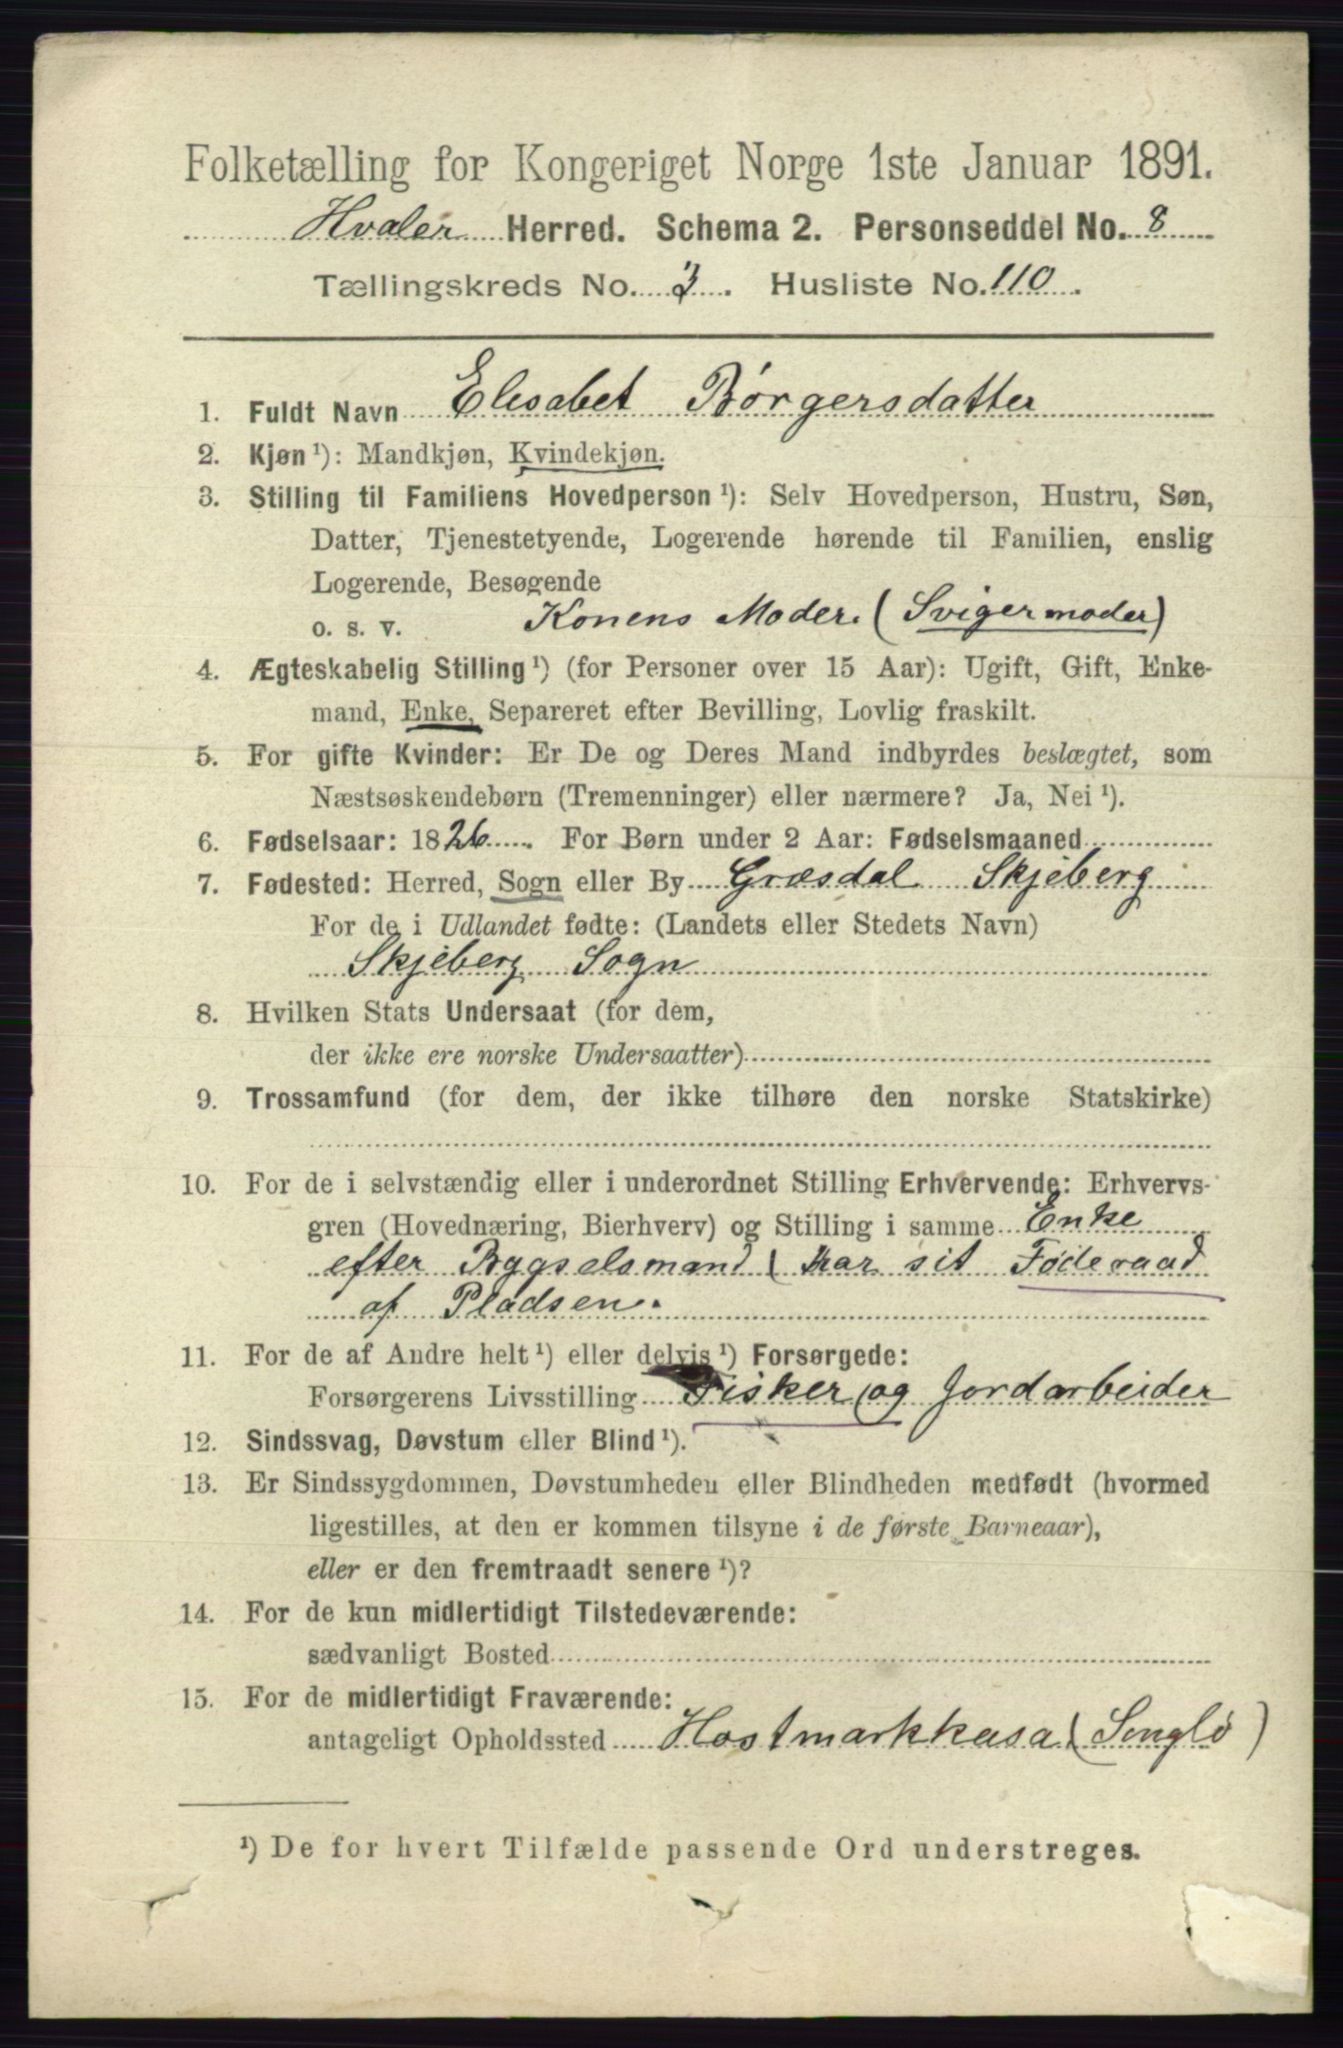 Folketælling for Kongeriget Norge 1ste Januar 1891.
Hvaler Herred. Schema 2. Personseddel No. 8
Tællingskreds No. 3. Husliste No. 110.
1. Fuldt Navn Elisabet Børgersdatter
2. Kjøn ¹): Mandkjøn, Kvindekjøn.
3. Stilling til Familiens Hovedperson ¹): Selv Hovedperson, Hustru, Søn,
Datter, Tjenestetyende, Logerende hørende til Familien, enslig
Logerende, Besøgende
o. s. v. Konens Moder. (Svigermoder)
4. Ægteskabelig Stilling ¹) (for Personer over 15 Aar): Ugift, Gift, Enke-
mand, Enke, Separeret efter Bevilling, Lovlig fraskilt.
5. For gifte Kvinder: Er De og Deres Mand indbyrdes beslægtet, som
Næstsøskendebørn (Tremenninger) eller nærmere? Ja, Nei ¹).
6. Fødselsaar: 1826. For Børn under 2 Aar: Fødselsmaaned
7. Fødested: Herred, Sogn eller By Græsdal Skjeberg
For de i Udlandet fødte: (Landets eller Stedets Navn)
Skjeberg Sogn
8. Hvilken Stats Undersaat (for dem,
der ikke ere norske Undersaatter)
9. Trossamfund (for dem, der ikke tilhøre den norske Statskirke)
10. For de i selvstændig eller i underordnet Stilling Erhvervende: Erhvervs-
gren (Hovednæring, Bierhverv) og Stilling i samme Enke
efter Bygselsmand (har sit Føderaad
af Pladsen.
11. For de af Andre helt ¹) eller delvis ¹) Forsørgede:
Forsørgerens Livsstilling Fisker og Jordarbeider
12. Sindssvag, Døvstum eller Blind ¹).
13. Er Sindssygdommen, Døvstumheden eller Blindheden medfødt (hvormed
ligestilles, at den er kommen tilsyne i de første Barneaar),
eller er den fremtraadt senere ¹)?
14. For de kun midlertidigt Tilstedeværende:
sædvanligt Bosted
15. For de midlertidigt Fraværende:
antageligt Opholdssted
¹) De for hvert Tilfælde passende Ord understreges.